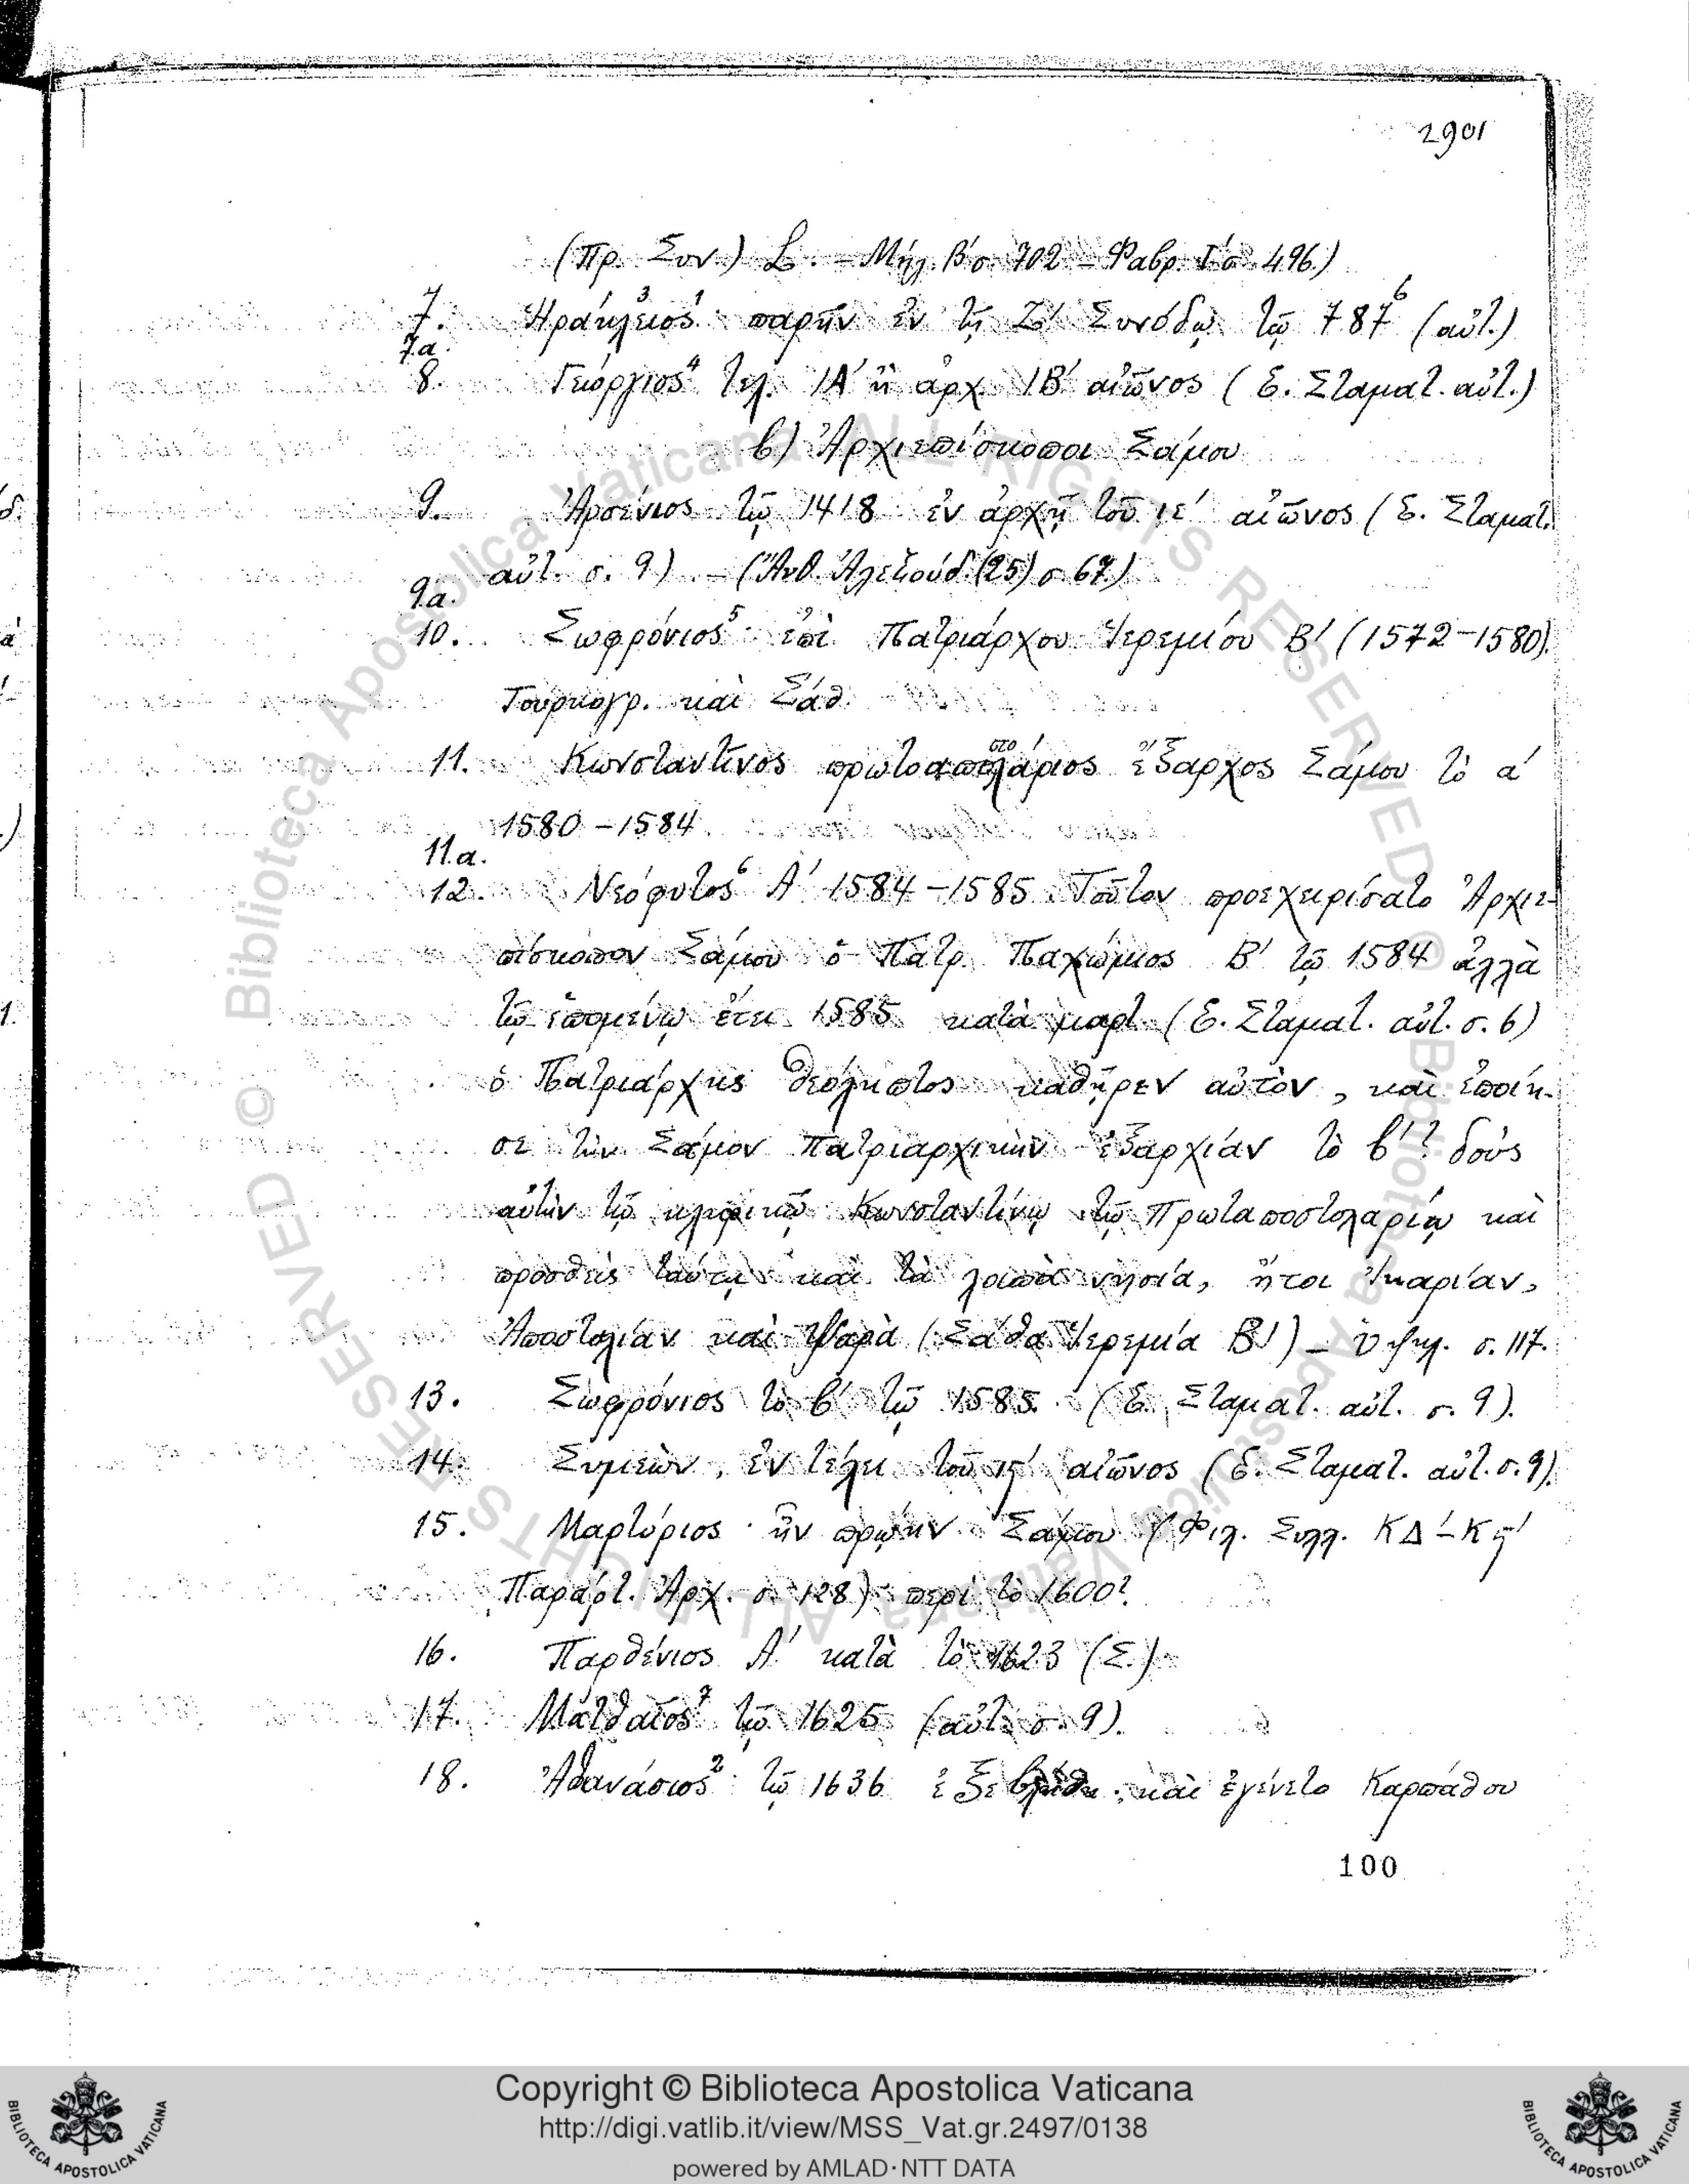 2901
(Πρ. Συν.) L. – Μήλ. Β΄ σ. 702 – Φαβρ. Γ΄ σ. 496.)
7. Ἡράκλειος³ παρῆν ἐν τῇ Ζ΄ Συνόδῳ τῷ 787⁶ (αὐτ.)
7α.
8. Γεώργιος⁴ τελ. ΙΑ΄ ἢ ἀρχ. ΙΒ΄ αἰῶνος (Ε. Σταματ. αὐτ.)
β) Ἀρχιεπίσκοποι Σάμου
9. Ἀρσένιος τῷ 1418 ἐν ἀρχῇ τοῦ ιε΄ αἰῶνος (Ε. Σταματ.
αὐτ. σ. 9) – (Ἀνθ. Ἀλεξούδ. (25) σ 67.)
9.α.
10. Σωφρόνιος⁵ ἐπὶ Πατριάρχου Ἱερεμίου Β΄ (1572–1580).
Τουρκογρ. καὶ Σάθ.
11. Κωνσταντῖνος πρωτοαποστολάριος ἔξαρχος Σάμου τὸ α΄
1580–1584.
11.α.
12. Νεόφυτος⁶ Α΄ 1584–1585. Τοῦτον προεχειρίσατο Ἀρχιε-
πίσκοπον Σάμου ὁ Πατρ. Παχώμιος Β΄ τῷ 1584 ἀλλὰ
τῷ ἑπομένῳ ἔτει 1585 κατὰ μαρτ. (Ε. Σταματ. αὐτ. σ. 6)
ὁ Πατριάρχης Θεόληπτος καθῇρεν αὐτὸν, καὶ ἐποίη-
σε τὴν Σάμον Πατριαρχικὴν ἐξαρχίαν τὸ β΄? δοὺς
αὐτὴν τῷ κληρικῷ Κωνσταντίνῳ τῷ Πρωταποστολαρίῳ καὶ
προσθεὶς ταύτῃ καὶ τὰ λοιπὰ νησιά, ἤτοι Ἰκαρίαν,
Ἀποστολίαν καὶ Ψαρὰ (Σάθα Ἱερεμία Β΄) – Ὑψηλ. σ. 117.
13. Σωφρόνιος τὸ β΄ τῷ 1585. (Ε. Σταματ. αὐτ. σ. 9).
14. Συμεὼν, ἐν τέλει τοῦ ιϛ΄ αἰῶνος (Ε. Σταματ. αὐτ. σ. 9).
15. Μαρτύριος· ἦν πρώην Σάμου (Φιλ. Συλλ. ΚΔ΄–Κϛ΄
Παράρτ. Ἀρχ. σ. 128) περὶ τὸ 1600?
16. Παρθένιος Α΄ κατὰ τὸ 1623 (Σ.)
17. Ματθαῖος⁷ τῷ 1625 (αὐτ. σ. 9).
18. Ἀθανάσιος² τῷ 1636 ἐξεβλήθη καὶ ἐγένετο Καρπάθου
100
Copyright © Biblioteca Apostolica Vaticana
http://digi.vatlib.it/view/MSS_Vat.gr.2497/0138
powered by AMLAD·NTT DATA
BIBLIOTECA APOSTOLICA VATICANA
BIBLIOTECA APOSTOLICA VATICANA